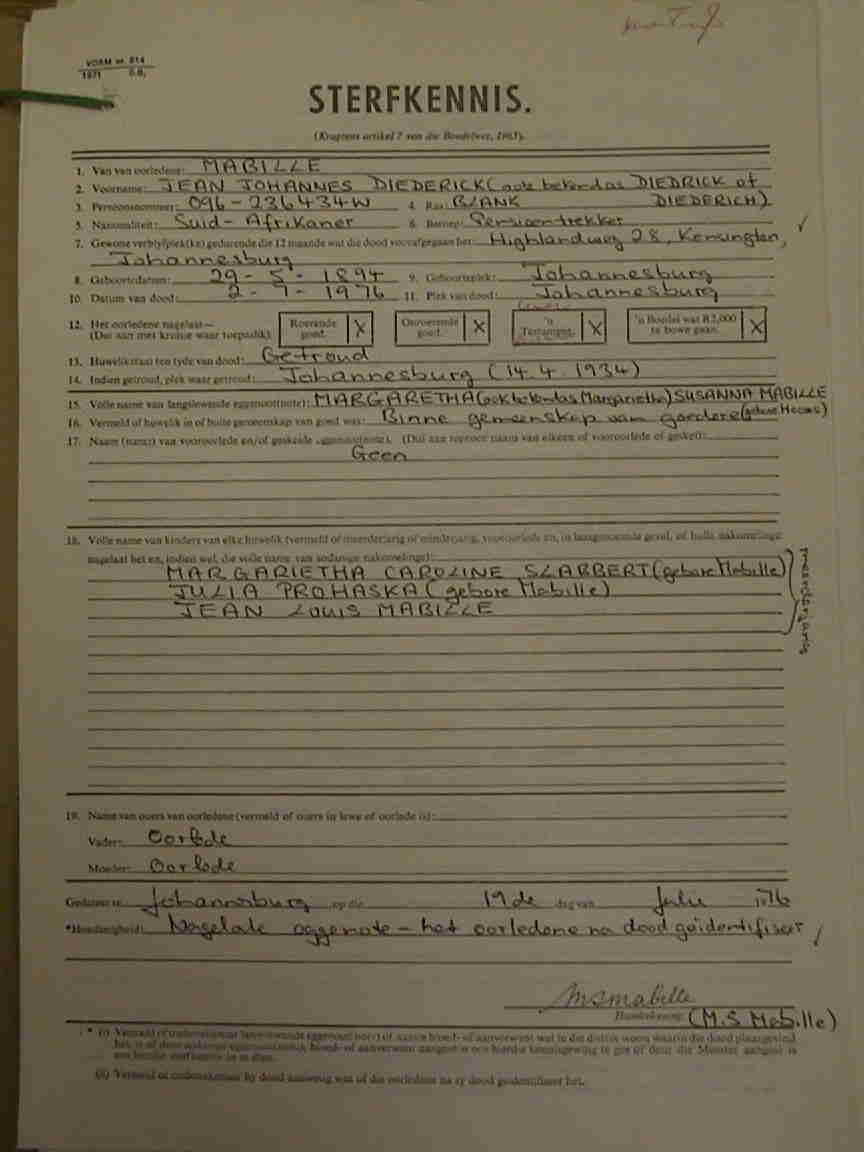 VORM nr. 814
1971 G.B.
STERFKENNIS.
(Kragtens artikel 7 van die Boedelwet, 1965).
1. Van van oorledene: MABILLE
2. Voorname: JEAN JOHANNES DIEDERICK (ook bekend as DIEDRICK of
3. Persoonsnommer: 096-236434W 4. Ras: BLANK DIEDERICH)
5. Nasionaliteit: Suid-Afrikaner 6. Beroep: Pensioentrekker
7. Gewone verblyfplek(ke) gedurende die 12 maande wat die dood voorafgegaan het: Highlandweg 28, Kensington,
Johannesburg
8. Geboortedatum: 29-5-1894 9. Geboorteplek: Johannesburg
10. Datum van dood: 2-7-1976 11. Plek van dood: Johannesburg
12. Het oorledene nagelaat— Roerende goed. X Onroerende goed. X 'n Testament. X 'n Boedel wat R2,000 te bowe gaan. X
(Dui aan met kruisie waar toepaslik)
13. Huwelikstaat ten tyde van dood: Getroud
14. Indien getroud, plek waar getroud: Johannesburg (14.4.1934)
15. Volle name van langslewende eggenoot(note): MARGARETHA (ook bekend as Margarietha) SUSANNA MABILLE
16. Vermeld of huwelik in of buite gemeenskap van goed was: Binne gemeenskap van goedere (gebore)
17. Naam (name) van vooroorlede en/of geskeide eggenoot(note). (Dui aan teenoor naam van elkeen of vooroorlede of geskei):
Geen
18. Volle name van kinders van elke huwelik (vermeld of meerderjarig of minderjarig, vooroorlede en, in laasgenoemde geval, of hulle nakomelinge
nagelaat het en, indien wel, die volle name van sodanige nakomelinge):
MARGARIETHA CAROLINE SLABBERT (gebore Mabille)
JULIA PROHASKA (gebore Mabille)
JEAN LOUIS MABILLE
meerderjarig
19. Name van ouers van oorledene (vermeld of ouers in lewe of oorlede is):
Vader: Oorlede
Moeder: Oorlede
Gedateer te Johannesburg op die 19de dag van Julie 1976
*Hoedanigheid: Nagelate eggenote – het oorledene na dood geïdentifiseer
MSMabille
Handtekening (M.S Mabille)
* (i) Vermeld of ondertekenaar langslewende eggenoot(note) of naaste bloed- of aanverwant wat in die distrik woon waarin die dood plaasgevind
(ii) Vermeld of ondertekenaar by dood aanwesig was of die oorledene na sy dood geïdentifiseer het.